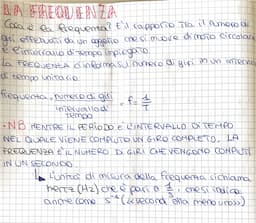 LA FREQUENZA
Cosa è la frequenza? È il rapporto tra il numero di
giri effettuati da un oggetto che si muove di moto circolare
e l'intervallo di tempo impiegato.
La FREQUENZA ci informa sul numero di giri in un intervallo
di tempo unitario.
frequenza = numero di giri / intervallo di tempo f = 1/T
• NB MENTRE IL PERIODO È L'INTERVALLO DI TEMPO
NEL QUALE VIENE COMPIUTO UN GIRO COMPLETO, LA
FREQUENZA È IL NUMERO DI GIRI CHE VENGONO COMPIUTI
IN UN SECONDO.
L'unità di misura della frequenza si chiama
hertz (Hz) che è pari a 1/s, che si indica
anche come s⁻¹ (secondi alla meno uno)